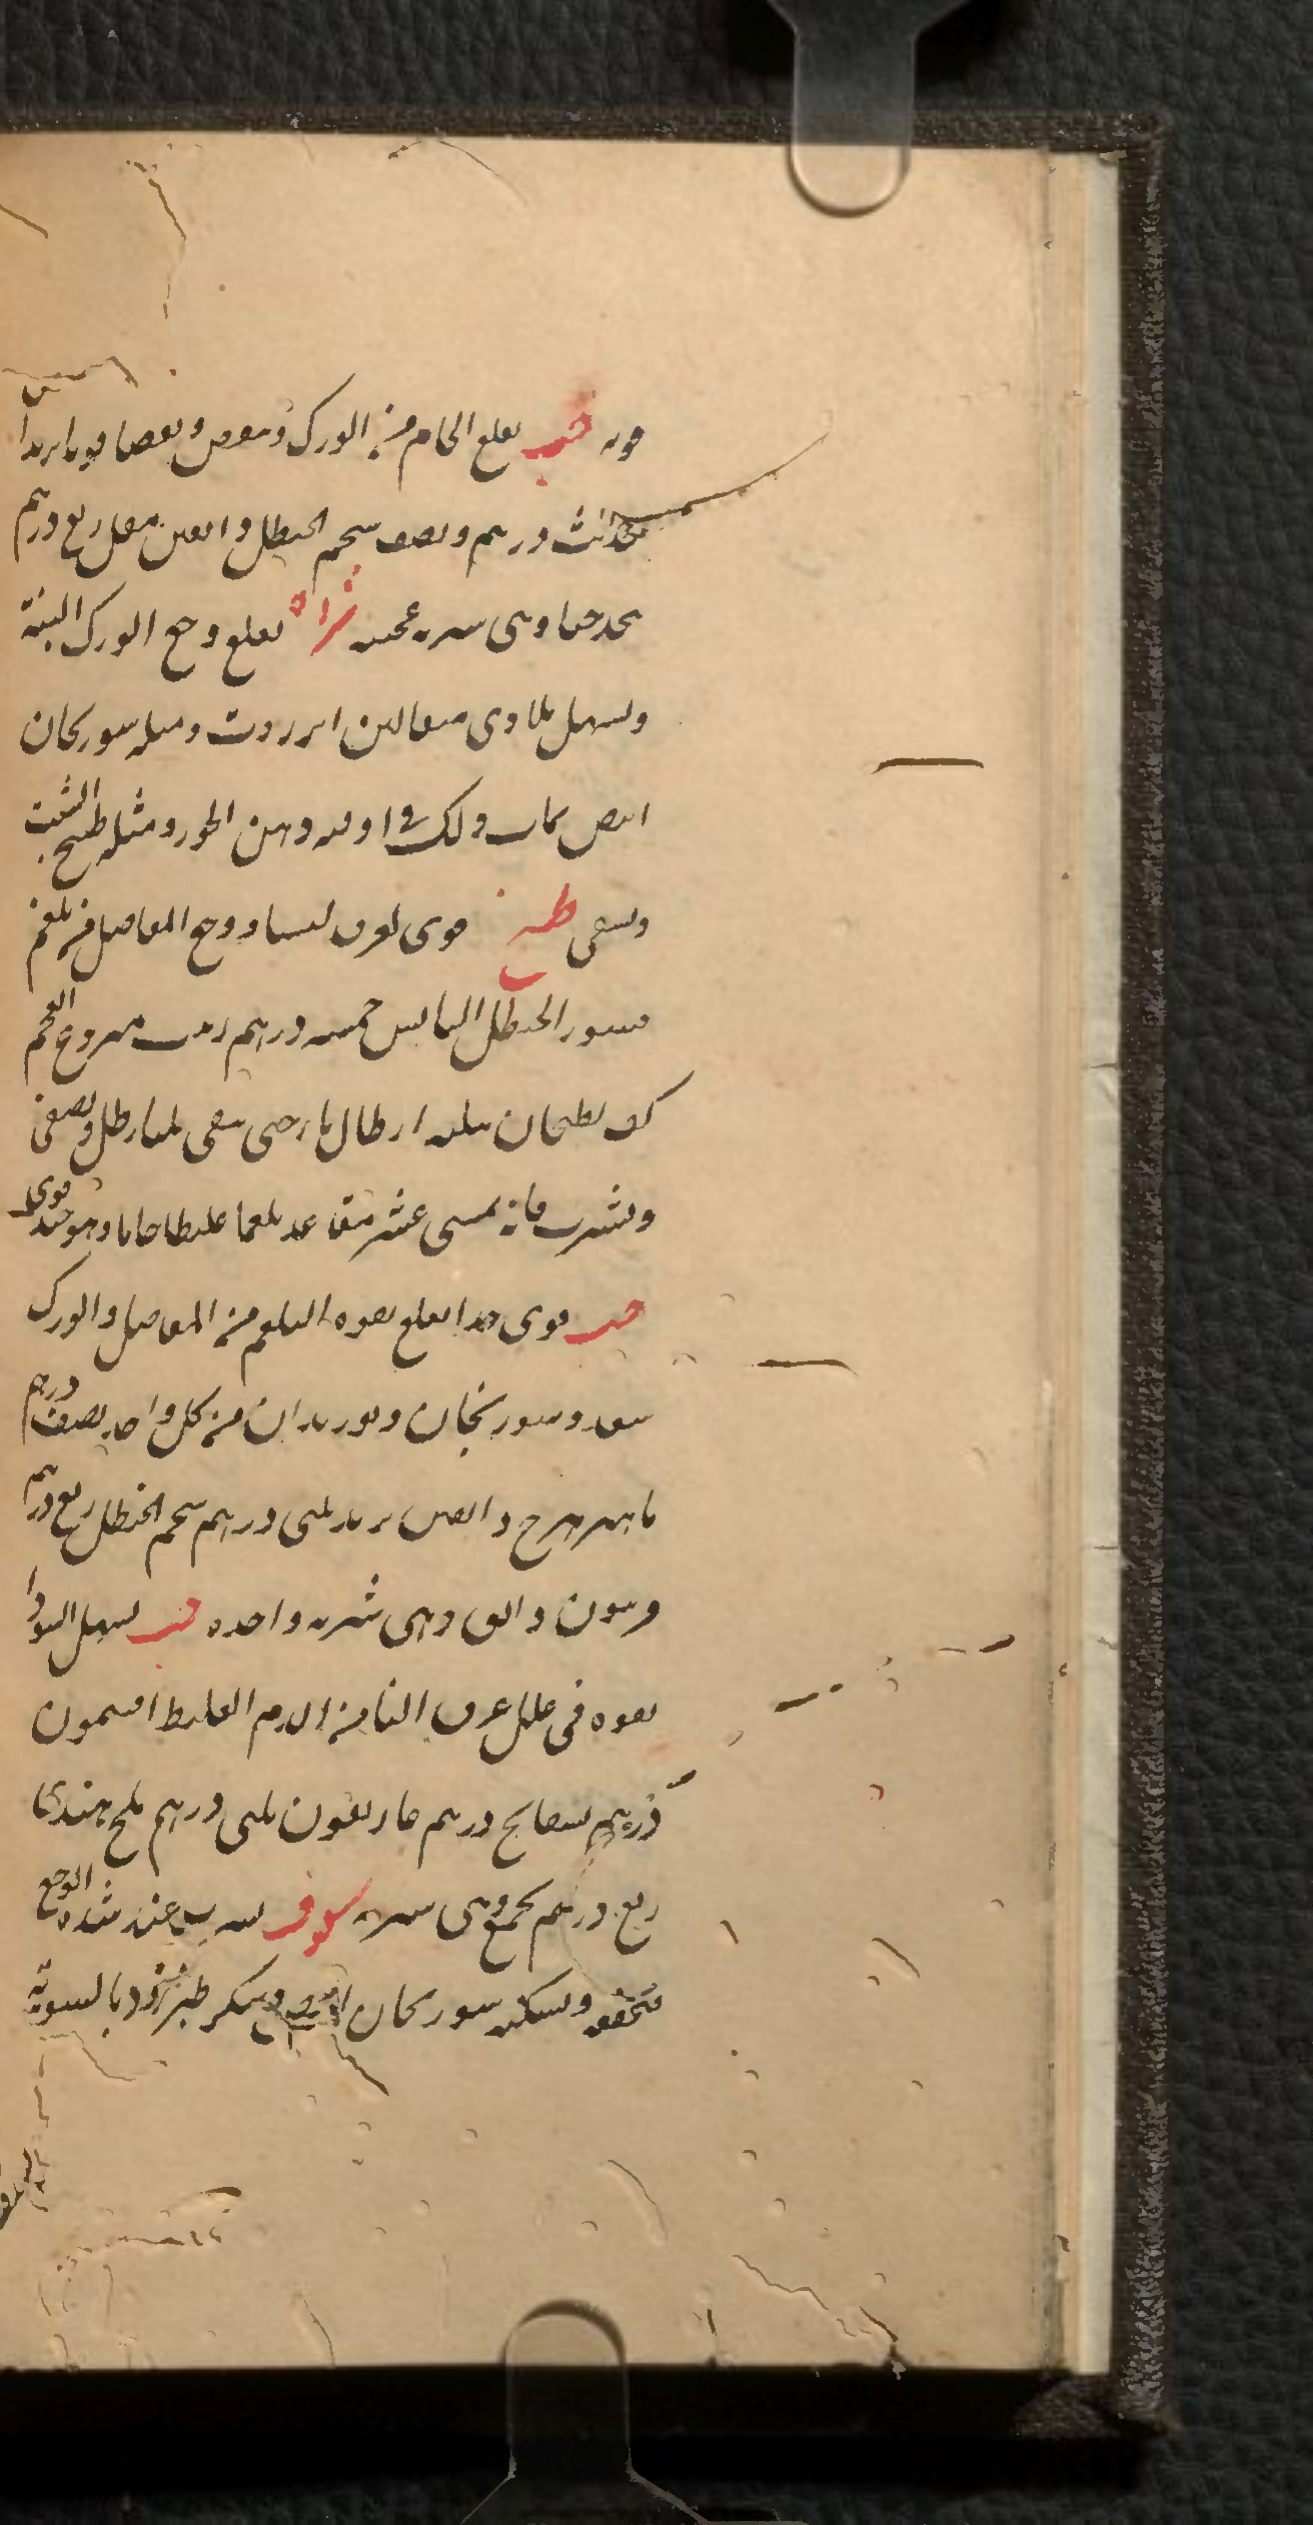 قوته حب يقلع الخام من الورك ونقرس وبعضا قويا تربدا
محدابث درهم ونصف شحم الحنظل دانقين مقل ربع درهم
يتخذ حبا وهي شربة عجيب شراب يقلع وجع الورك البتة
ويسهل بلا اذى مثقالين انزروت ومثله سورنجان
ابيض يداف ذلك في اوقية دهن الجوز ومثله طبيخ الشبث
ويسقى طبيخ قوي لعرق النسا ووجع المفاصل من بلغم
قشور الحنظل اليابس خمسة درهم زبيب منزوع العجم
كف يطبخان بثلثة ارطال ماء حتى يبقى ثلثا رطل ويصفى
ويشرب فانه يمشي عشر مقاعد بلغما غليظا خاما وهو جيد قوي
حب قوي جدا يقلع بقوة البلغم من المفاصل والورك
سورنجان وبوزيدان من كل واحد نصف درهم
ماهيزهرج دانقين تربد ثلثي درهم شحم الحنظل ربع درهم
دانق وهي شربة واحدة حب يسهل السودا
بقوة في علل عرق النسا من الدم الغليظ افتيمون
درهم بسفايج درهم غاريقون ثلثي درهم ملح هندي
ربع درهم يجمع وهي شربة سفوف يشرب عند شدة الوجع
فيخففه ويسكنه سورنجان ابيض وسكر طبرزد بالسوية